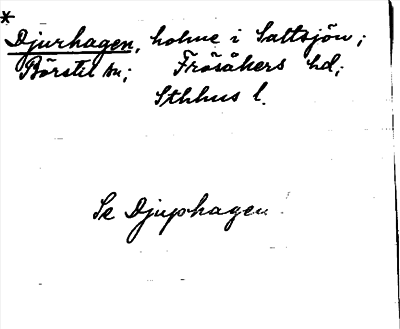 *
Djurhagen, holme i Saltsjön;
Börstil sn; Frösåkers hd;
Sthlms l.
Se Djuphagen